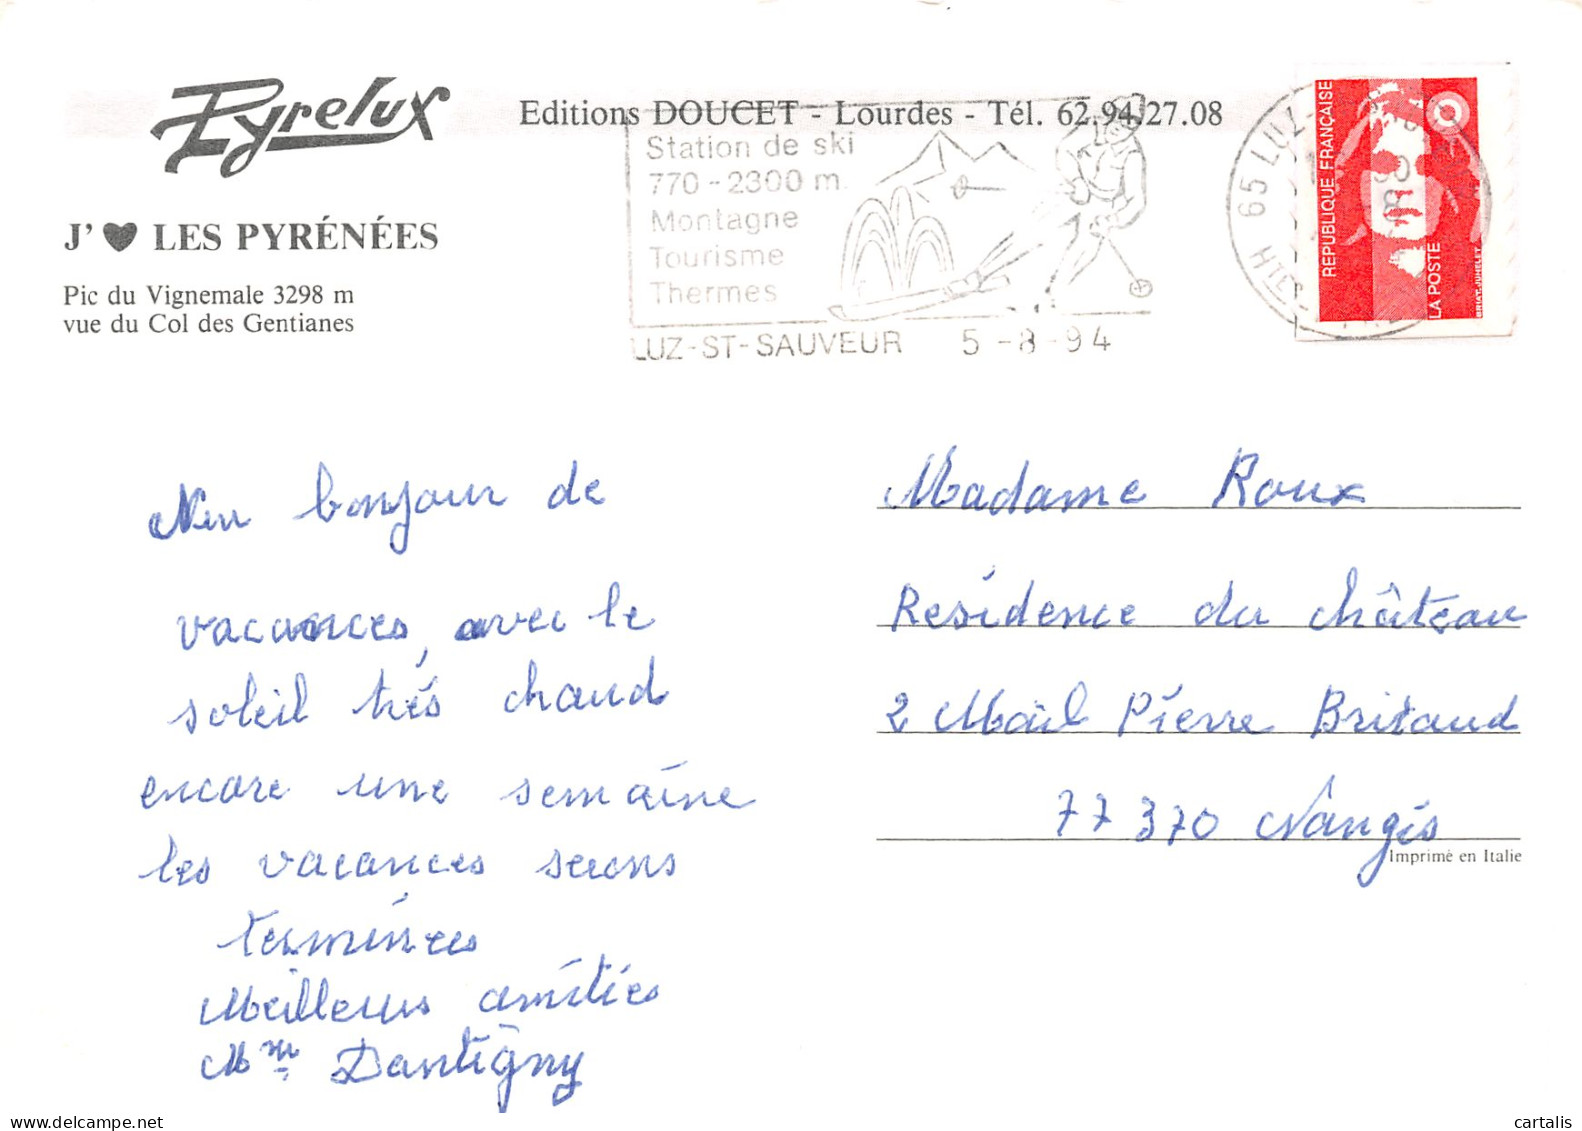 Pyrelux
Editions DOUCET - Lourdes - Tél. 62.94.27.08
J'♥ LES PYRÉNÉES
Pic du Vignemale 3298 m
vue du Col des Gentianes
Station de ski
770-2300 m.
Montagne
Tourisme
Thermes
LUZ-ST-SAUVEUR 5-8-94
65 LUZ
RÉPUBLIQUE FRANÇAISE
LA POSTE
BRIAT-JUMELET
bonjour de
vacances, avec le
soleil trés chaud
encore une semaine
les vacances serons
terminées
Meilleurs amitiés
Mme Dantigny
Madame Roux
Residence du château
2 Mail Pierre Britaud
77370 Nangis
Imprimé en Italie
cartalis
delcampe.net